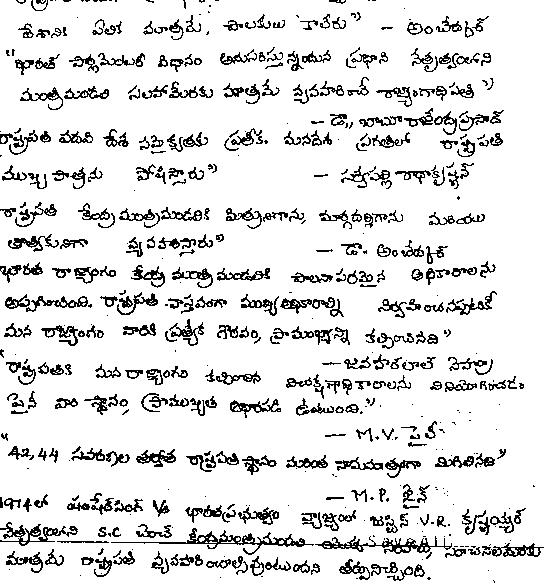 దేశానికి ఏలిక మాత్రమే, పాలకులు కాలేరు" – అంబేద్కర్
"భారత పార్లమెంటరీ విధానం అనుసరిస్తున్నందున ప్రధాని నేతృత్వంలోని
మంత్రిమండలి సలహామేరకు మాత్రమే వ్యవహరించే రాజ్యాంగాధిపతి"
– డా,, బాబూ రాజేంద్రప్రసాద్
రాష్ట్రపతి పదవి దేశ సమైక్యతకు ప్రతీక. మనదేశ ప్రగతిలో రాష్ట్రపతి
ముఖ్య పాత్రను పోషిస్తారు" – సర్వేపల్లి రాధాకృష్ణన్
రాష్ట్రపతి కేంద్ర మంత్రిమండలికి మిత్రునిగాను, మార్గదర్శిగాను మరియు
తాత్వికునిగా వ్యవహరిస్తారు" – డా. అంబేద్కర్
భారత రాజ్యాంగం కేంద్ర మంత్రి మండలికి పాలనాపరమైన అధికారాలను
అప్పగించింది. రాష్ట్రపతి వాస్తవంగా ముఖ్య అధికారాల్ని నిర్వహించనప్పటికీ
మన రాజ్యాంగం వారికి ప్రత్యేక గౌరవం, ప్రాముఖ్యాన్ని కల్పించినది"
– జవహర్‌లాల్ నెహ్రూ
"రాష్ట్రపతికి మన రాజ్యాంగం కల్పించిన విచక్షణాధికారాలను వినియోగించడం
పైనే వారి స్థానం, ప్రాముఖ్యత ఆధారపడి ఉంటుంది."
– M.V. పైలీ
"42,44 సవరణల తర్వాత రాష్ట్రపతి స్థానం మరింత నామమాత్రంగా మిగిలినది"
– M.P. జైన్
1974లో షంషేర్‌సింగ్ Vs భారతప్రభుత్వం వ్యాజ్యంలో జస్టిస్ V.R. కృష్ణయ్యర్
నేతృత్వంలోని S.C బెంచ్ కేంద్రమంత్రిమండలి సలహామేరకు
మాత్రమే రాష్ట్రపతి వ్యవహరించాల్సివుంటుందని తీర్పునిచ్చింది.